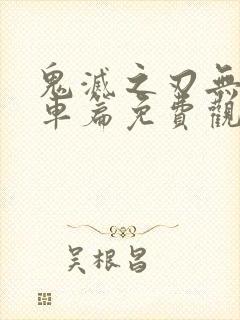 鬼滅之刃無
車篇免費觀
吴根昌